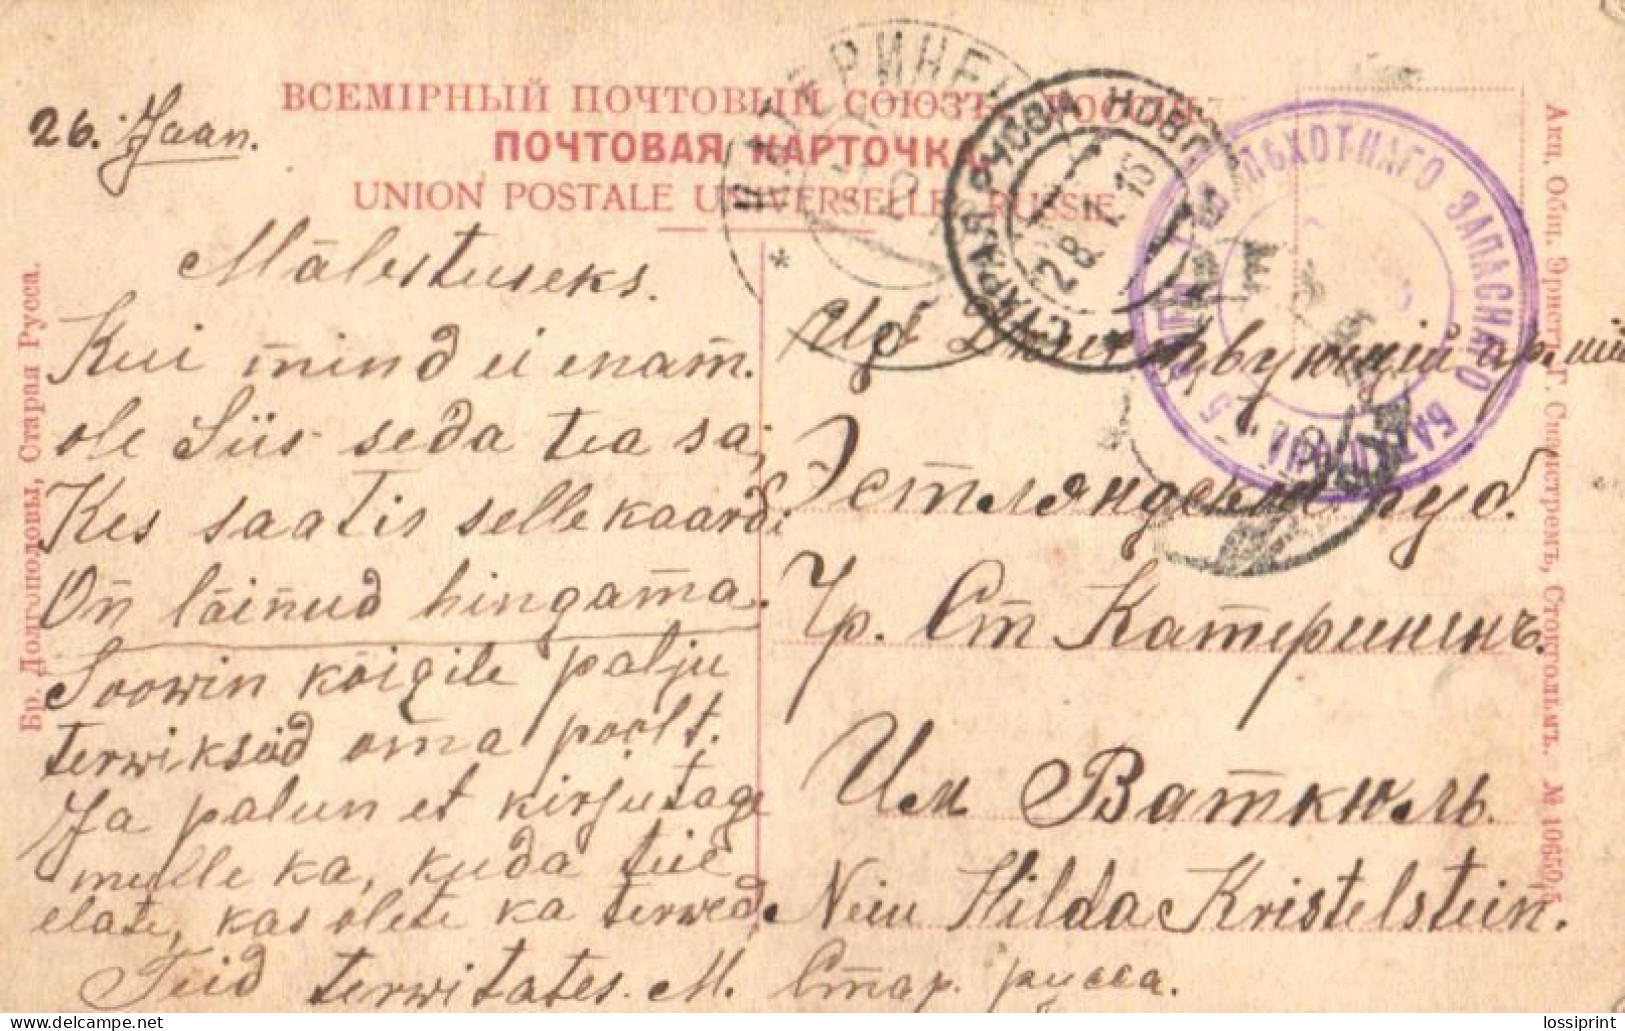 ВСЕМІРНЫЙ ПОЧТОВЫЙ СОЮЗЪ. РОССІЯ.
ПОЧТОВАЯ КАРТОЧКА
UNION POSTALE UNIVERSELLE. RUSSIE.
26. Jaan.
Mälestuseks.
Kui mind ei enam.
ole Siis seda tea sa;
Kes saatis selle kaardi
On läinud hingama.
Soowin kõigile palju
terwiksüd oma poolt.
Ja palun et kirjutage
mulle ka, kuda teie
elate, kas olete ka terwed.
Teid terwitates. M.
Изъ Действующій арміи
Эстляндская губ.
Чр. Ст Катериненъ.
Им Ваткюль.
Neiu Hilda Kristelstein.
Стар. русса.
СТАРАЯ РУССА НОВГ.
28.1.16
КАТЕРИНЕ
ПѢХОТНАГО ЗАПАСНАГО БАТАЛІОНА
Бр. Долгополовы, Старая Русса.
Акц. Общ. Эрнстъ Г. Сванстремъ, Стокгольмъ. № 10650,5
lossiprint
delcampe.net